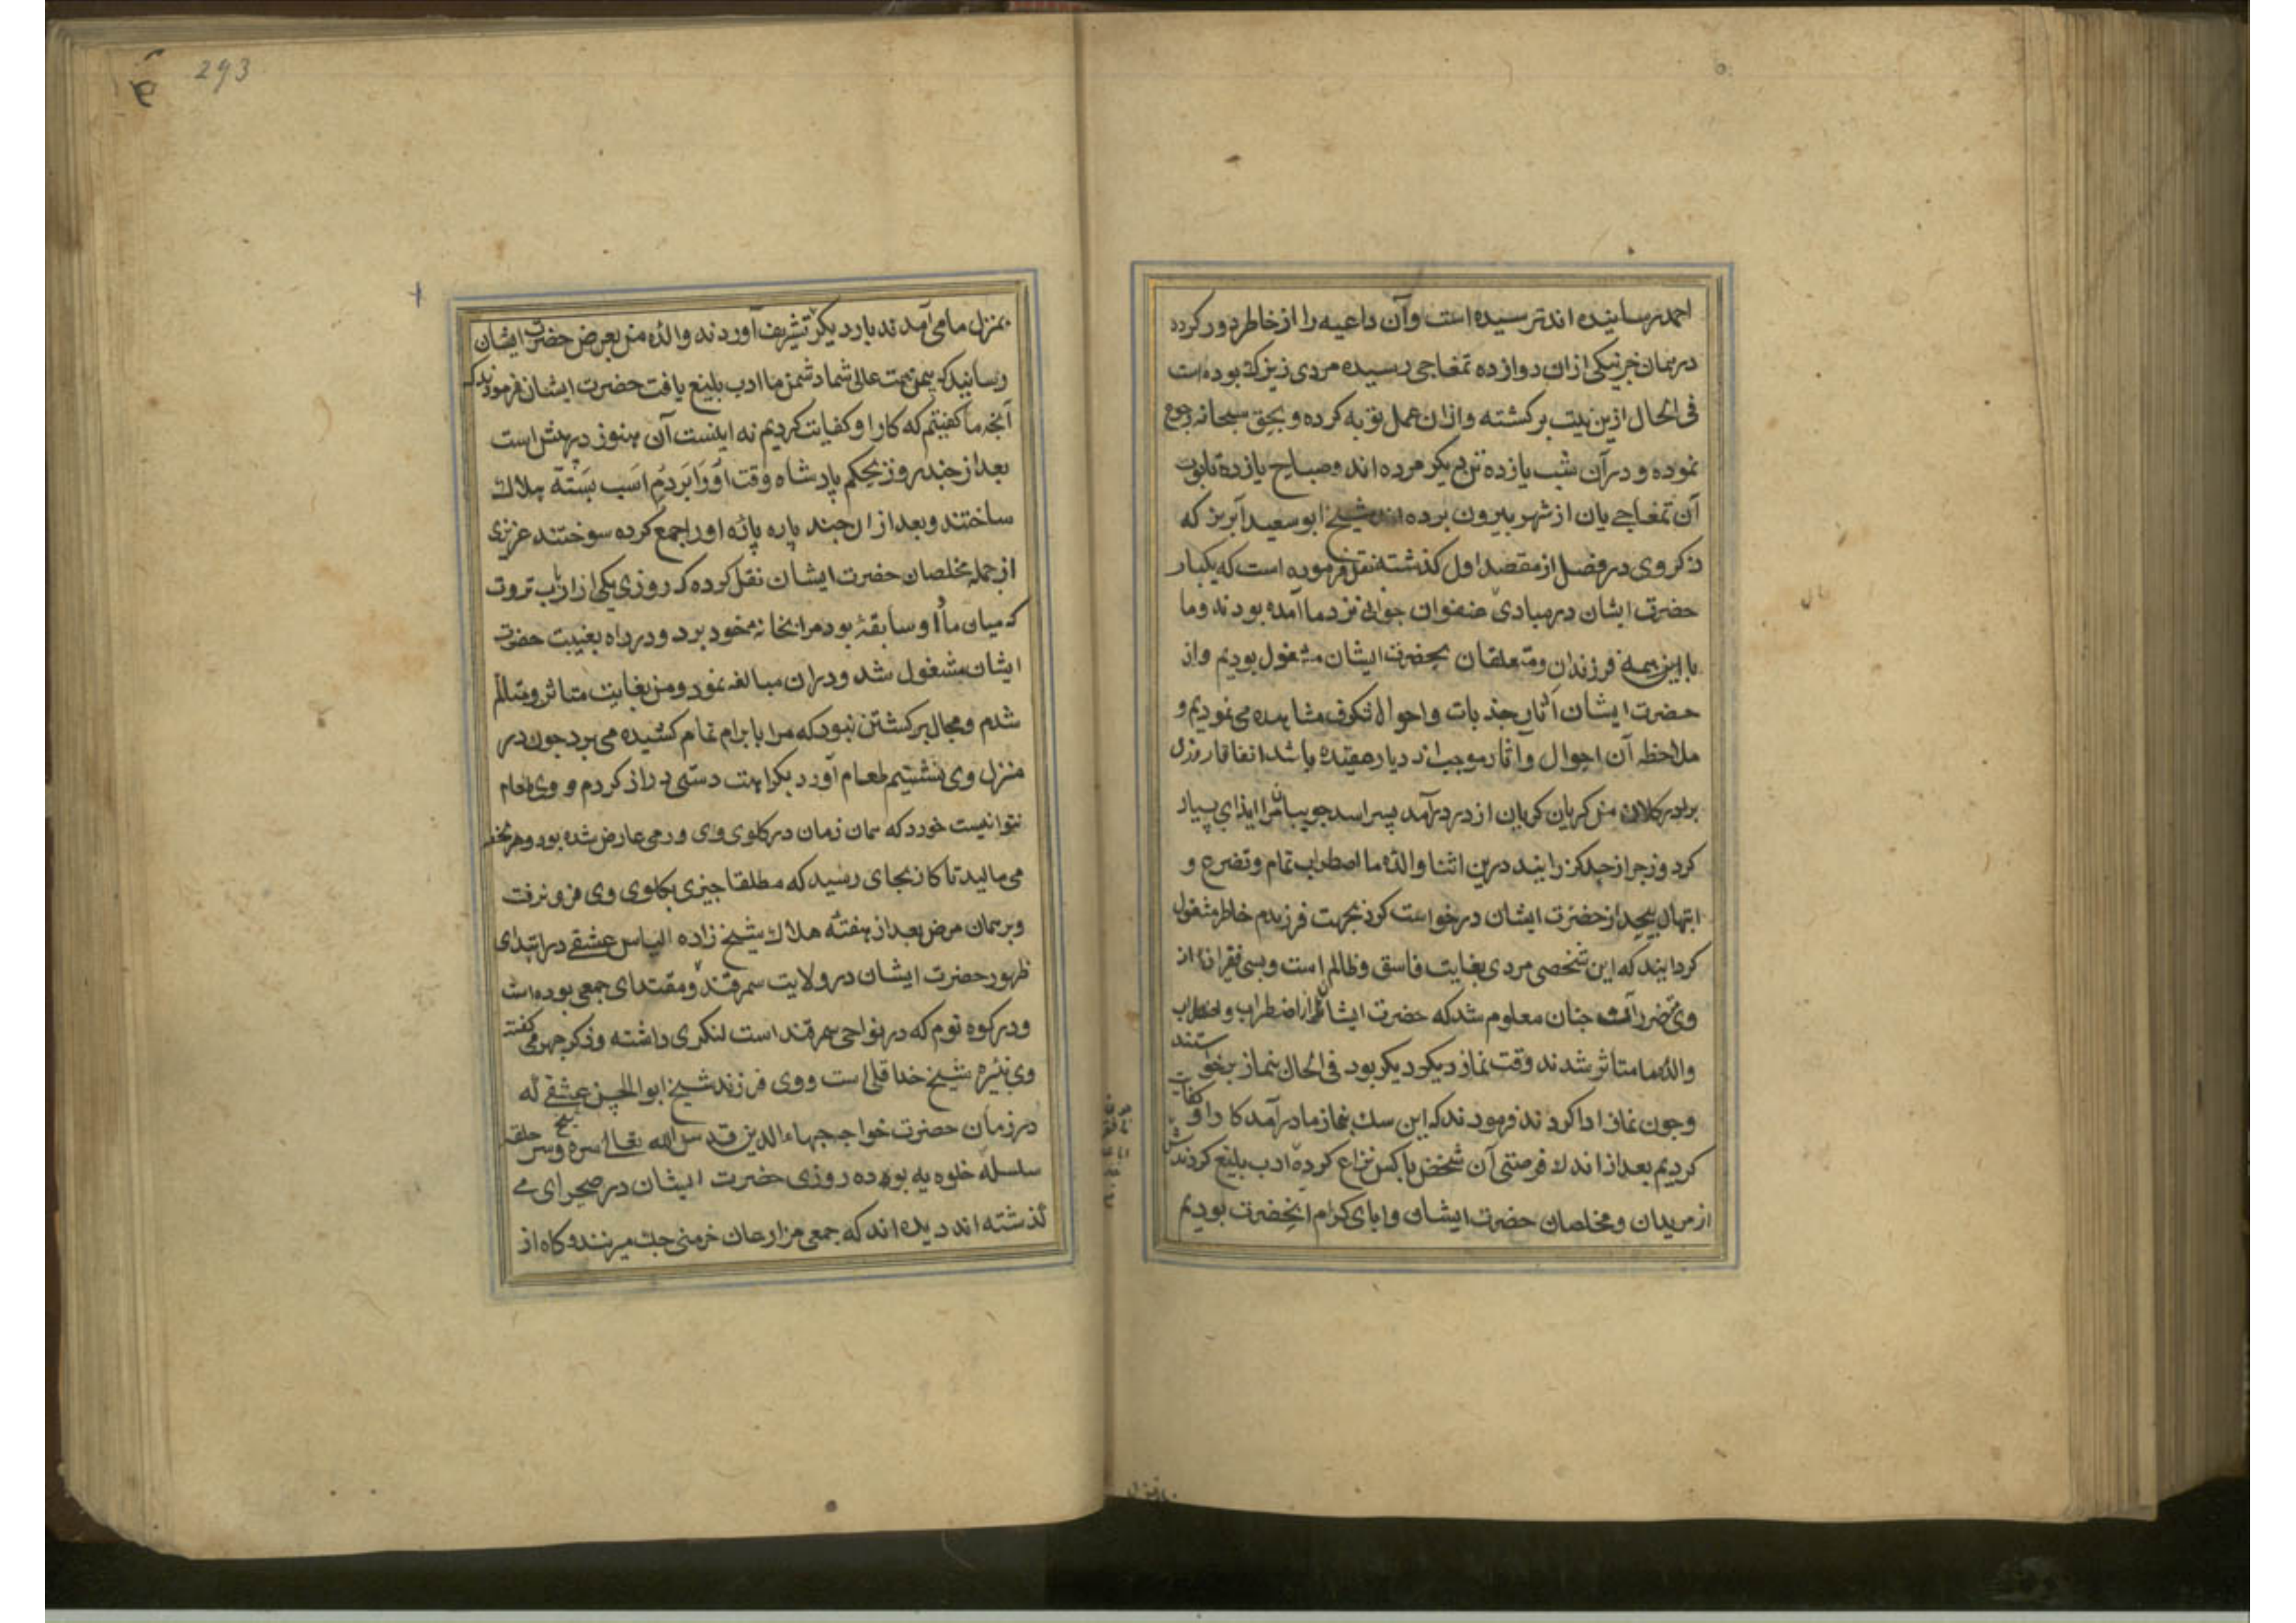 احمد رسانیده اند ترسیده است وآن داعیه را از خاطر دور کرده
در همان خر نیکی ازان دوازده تمغاجی رسیده مردی زیرک بوده است
فی الحال ازین نیت برکشته وازان عمل توبه کرده و بحق سبحانه رجوع
نموده و درآن شب یازده تن دیکر مرده اند وصباح یازده تابوت
آن تمغاجی یان از شهر بیرون برده اند شیخ ابوسعید آبریز که
ذکر وی در فصل از مقصد اول کذشته نقل فرموده است که یکبار
حضرت ایشان در مبادی عنفوان جوانی نزد ما آمده بودند وما
با این همه فرزندان ومتعلقان بحضرت ایشان مشغول بودیم واز
حضرت ایشان آثار جذبات واحوال شکرف مشاهده می نمودیم و
ملاحظه آن احوال وآثار موجب ازدیاد عقیده باشد اتفاقا روزی
برادر کلان من کریان کریان از در درآمد پسر اسد جویبان مرا ایذای بسیار
کرد وزجر از حد کذرانید درین اثنا والده ما اضطراب تمام وتضرع و
ابتهال بیحد از حضرت ایشان درخواست کرد بجهت فرزندم خاطر مشغول
کردانید که این شخصی مردی بغایت فاسق وظالم است وبسی فقرا از
وی متضرر آند جنان معلوم شد که حضرت ایشان از اضطراب و
والده ما متاثر شدند وقت نماز دیکر بود فی الحال بنماز برخواستند
وجون نماز ادا کردند فرمودند که این سک بنماز ما درآمد کار او کفایت
کردیم بعد از اندک فرصتی آن شخص باکس نزاع کرده ادب بلیغ کردندش
از مریدان ومخلصان حضرت ایشان وابای کرام انحضرت بودیم
293
بمنزل ما می آمدند بار دیکر تشریف آوردند والده من بعرض حضرت ایشان
رسانید که بیمن همت عالی شما دشمن ما ادب بلیغ یافت حضرت ایشان فرمودند که
آنچه ما کفتیم که کار او کفایت کردیم نه اینست آن هنوز در پیش است
بعد از جند روز بحکم پادشاه وقت اورا بر دم اسب بسته هلاک
ساختند وبعد ازان جند پاره پاره اورا جمع کرده سوختند عزیزی
از جمله مخلصان حضرت ایشان نقل کرده که روزی یکی از ارباب ثروت
که میان ما و او سابقه بود مرا بخانه خود برد ودر راه بغیبت حضرت
ایشان مشغول شد ودران مبالغه نمود ومن بغایت متاثر ومتالم
شدم ومجال برکشتن نبود که مرا بابرام تمام کشیده می برد جون در
منزل وی نشستیم طعام آورد بکراهت دستی دراز کردم و وی طعام
نتوانست خورد که همان زمان در کلوی وی ورمی عارض شده بود وهر لحظه
می مالید تا کار بجای رسید که مطلقا جیزی بکلوی وی فرو نرفت
وبر همان مرض بعد از هفته هلاک شیخ زاده الیاس عشقی در ابتدای
ظهور حضرت ایشان در ولایت سمرقند ومقتدای جمعی بوده است
ودر کوه نوم که در نواحی سمرقند است لنکری داشته وذکر جهر می کفته
وی نبیره شیخ خداقلی است ووی فرزند شیخ ابوالحسن عشقی که
در زمان حضرت خواجه بهاءالدین قدس الله تعالی سره وسر حلقه
سلسله خلویه بوده روزی حضرت ایشان در صحرای می
کذشته اند دیده اند که جمعی مزارعان خرمنی میزنند وکاه از